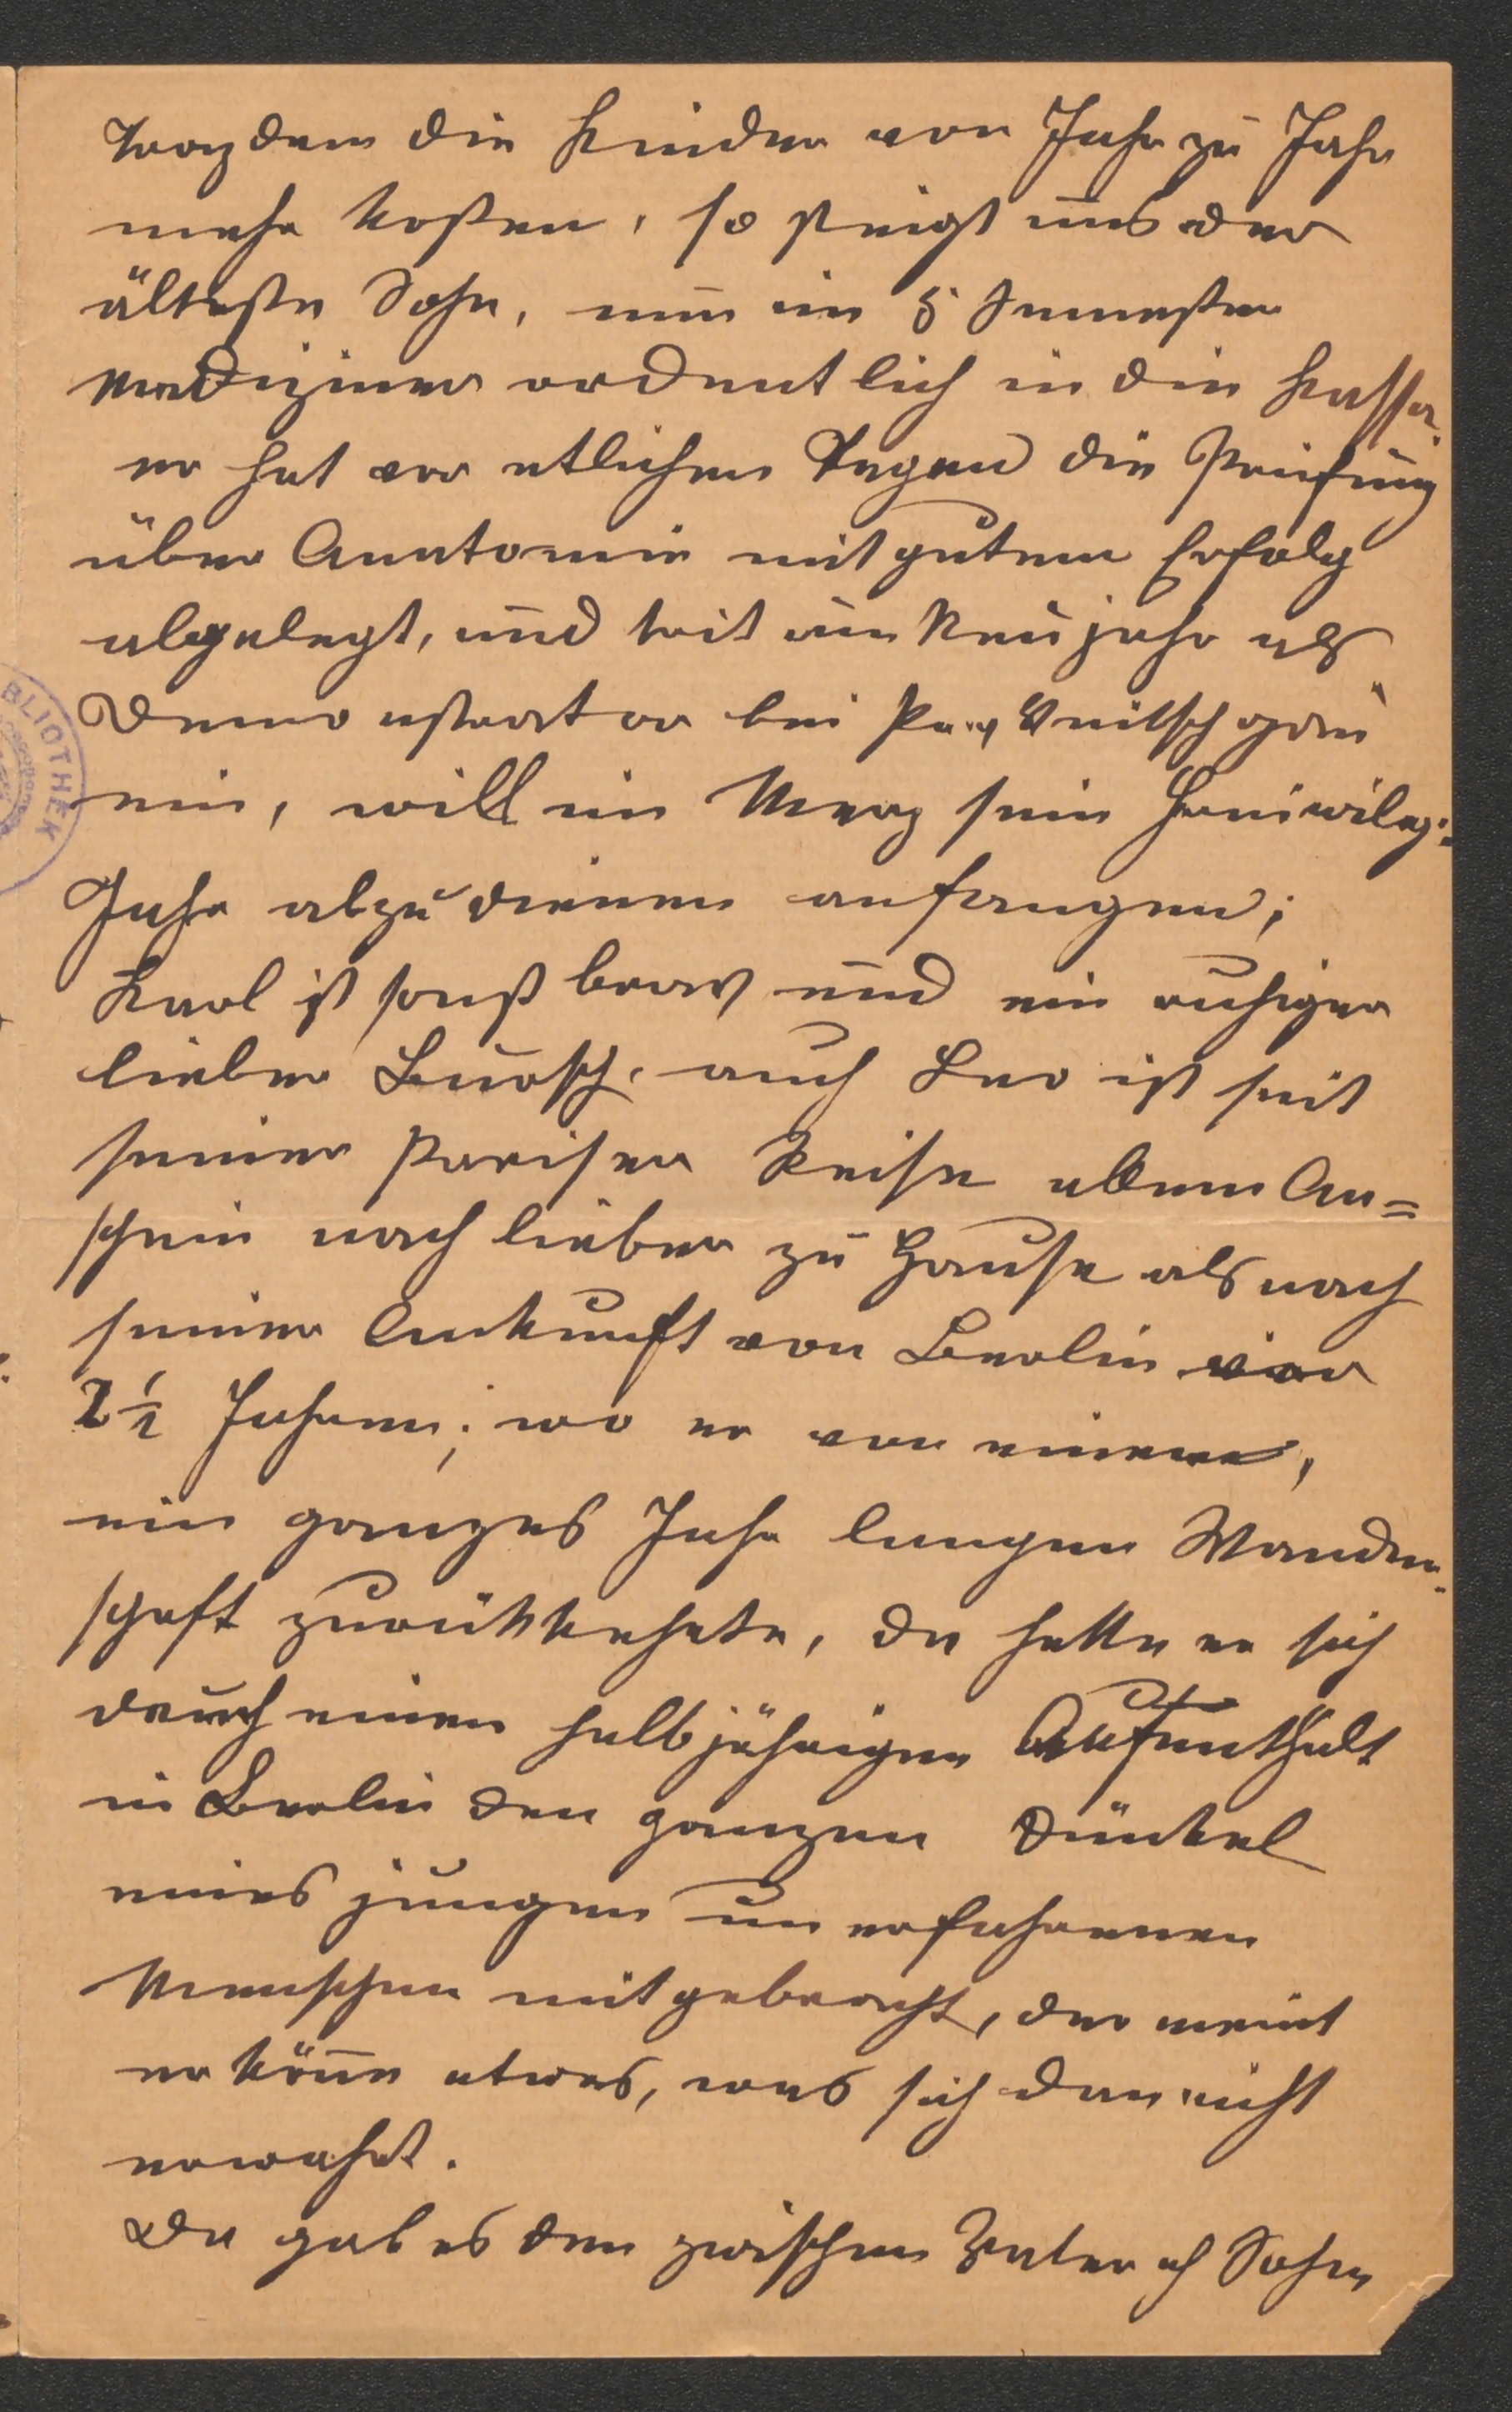 trozdem die Kinder von Jahr zu Jahr
mehr kosten, so steigt uns der
älteste Sohn, nun im 5 Semester
Mediziner ordentlich in die Kasse.
er hat vor etlichen Tagen die Prüfung
über Anatomie mit gutem Erfolg
abgelegt, und trit um Neujahr als
Demonstrator bei
ein, will im Merz sein Freiwilg:
Jahr abzudienen anfangen;
Karl ist sonst brav und ein ruhiger
lieber Bursch. auch Leo ist seit
seiner Pariser Reise allem An=
schein nach lieber zu Hause als nach
seiner Ankunft von Berlin vor
2 1/2 Jahren; wo er von einer,
ein ganzes Jahr langen Wander-
schaft zurükkehrte, da hatte er sich
durch einen halbjährigen Aufenthalt
in Berlin den ganzen Dünkel
eines jungen unerfahrenen
Menschen mitgebracht, der meint
er könne etwas, was sich dan nicht
erwahrt.
Da gab es den zwischen Vater & Sohn
BLIOTHEK